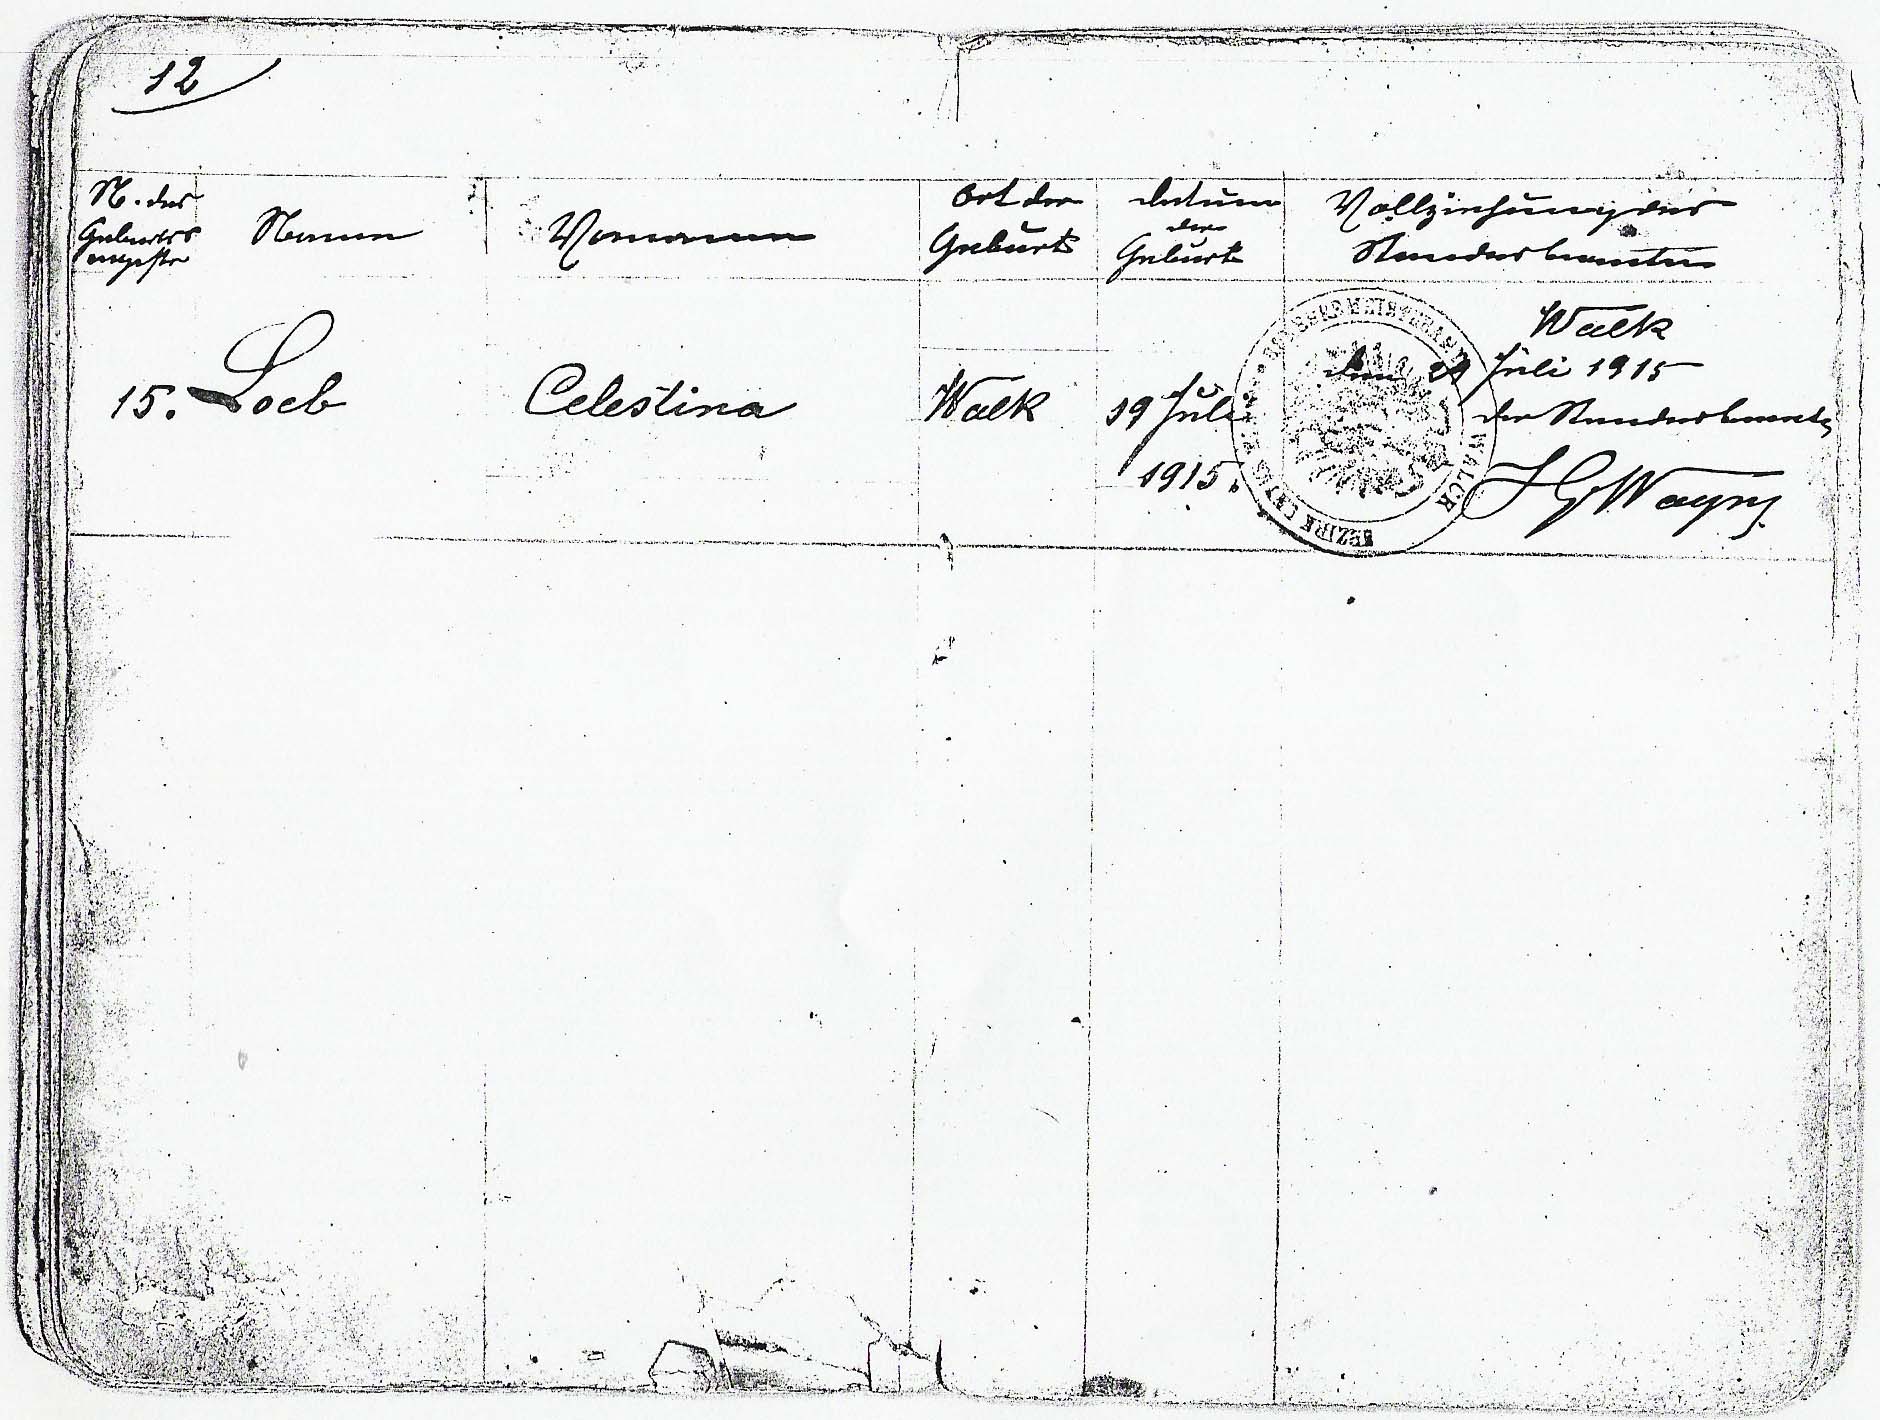 12
N. des
Geburts
register
Namen
Vornamen
Ort der
Geburts
datum
der
Geburt
Vollziehung des
Standesbeamten
15. Loeb
Celestina
Walk
19 Juli
1915.
Walk
den 29 Juli 1915
der Standesbeamte
BÜRGERMEISTERAMT WALCK
BEZIRK